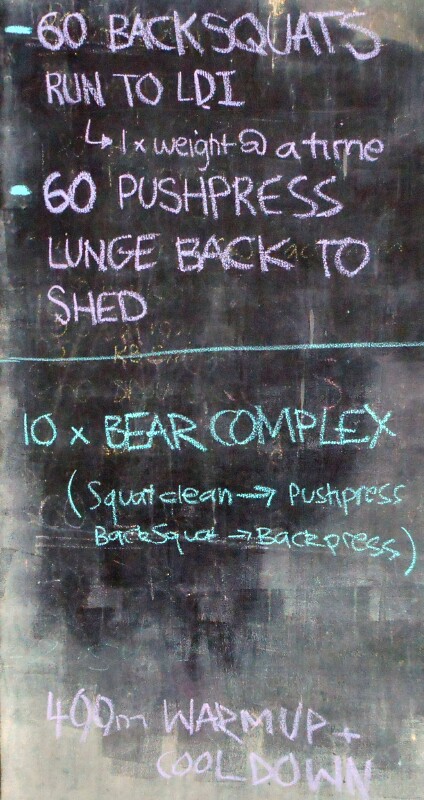 - 60 BACKSQUATS
RUN TO LDI
↳ 1 x weight @ a time
- 60 PUSHPRESS
LUNGE BACK TO
SHED
10 x BEAR COMPLEX
(Squatclean → Pushpress
BackSquat → Backpress)
400m WARMUP +
COOLDOWN